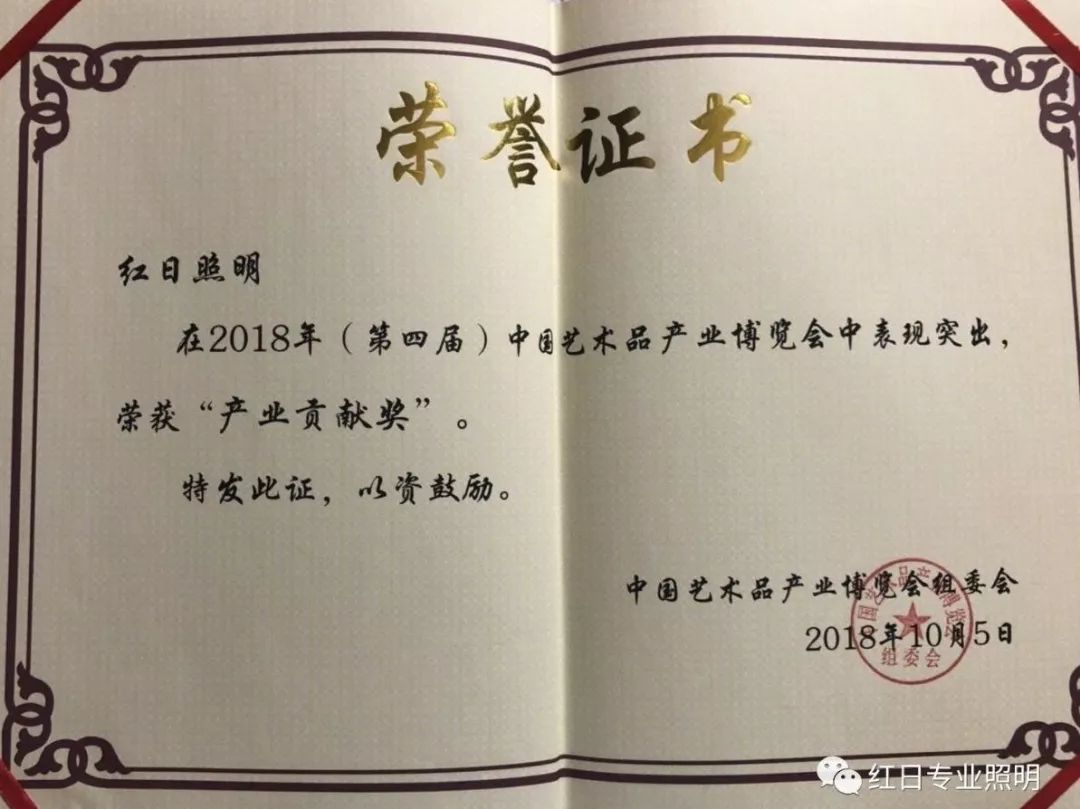 荣誉证书
红日照明
在2018年（第四届）中国艺术品产业博览会中表现突出，
荣获“产业贡献奖”。
特发此证，以资鼓励。
中国艺术品产业博览会组委会
2018年10月5日
中国艺术品产业博览会
组委会
红日专业照明